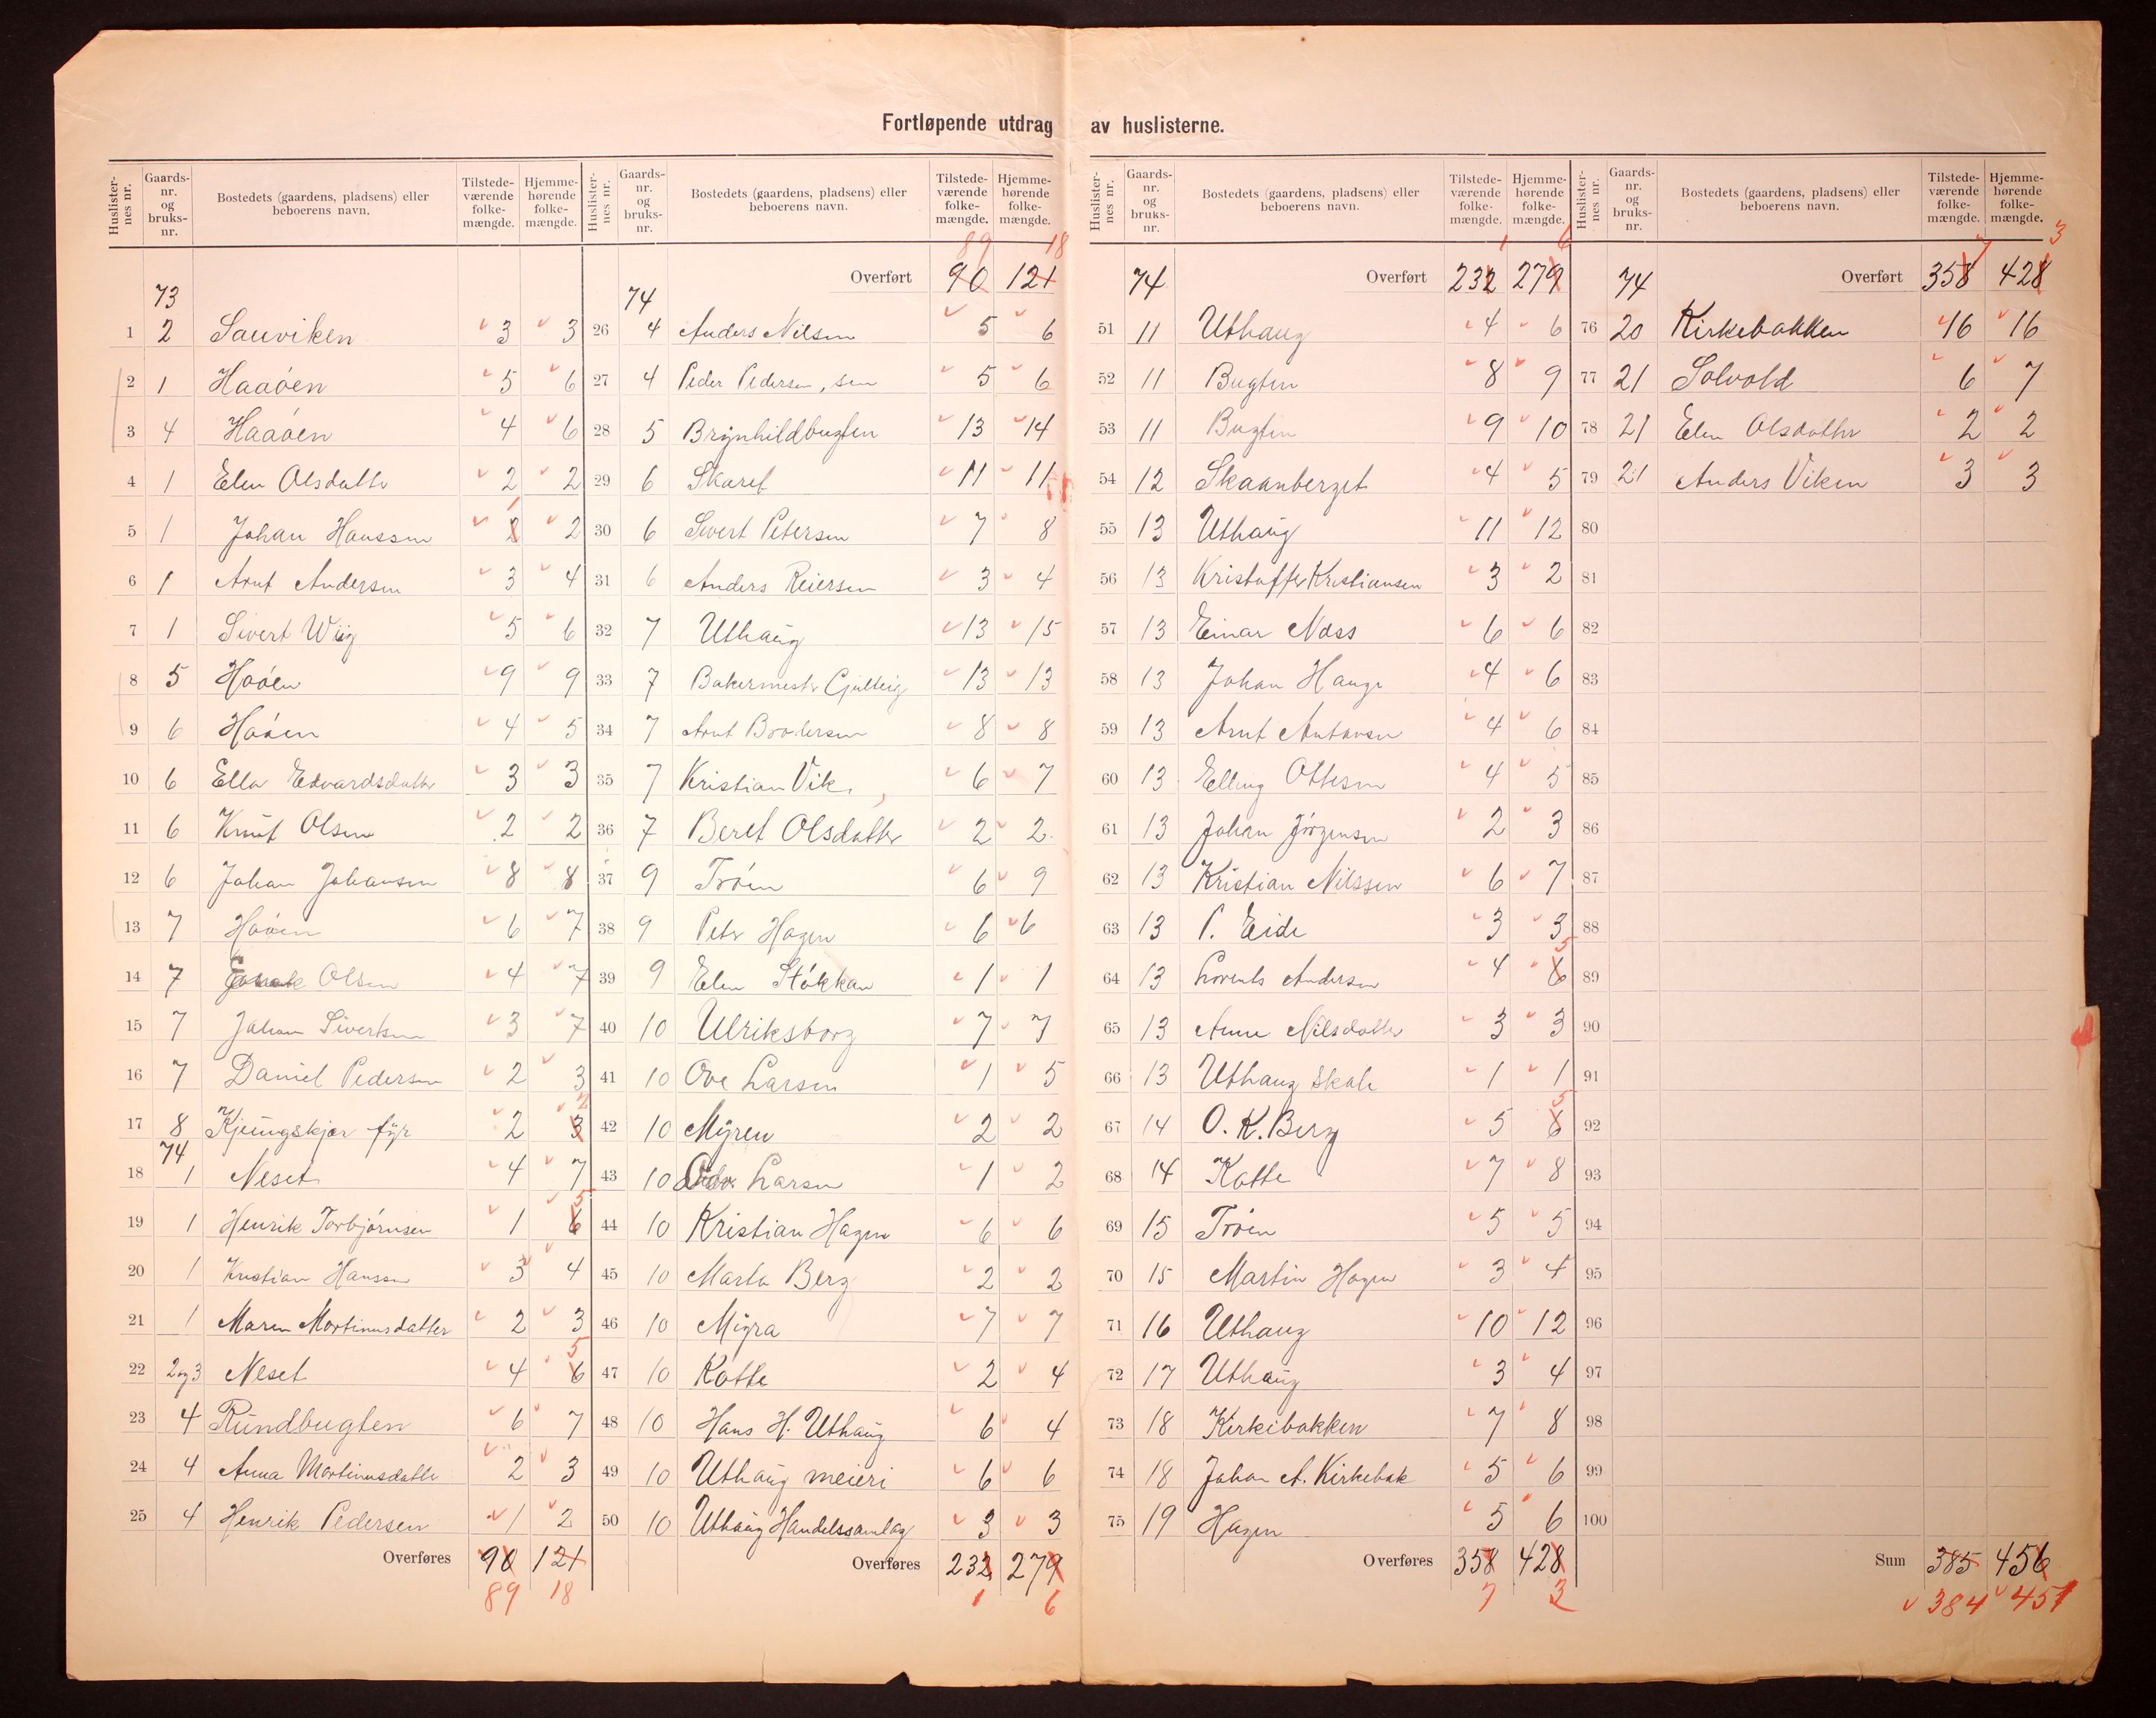 Fortløpende utdrag av huslisterne.
Huslisternes nr. Gaards-nr. og bruks-nr. Bostedets (gaardens, pladsens) eller beboerens navn. Tilstedeværende folkemængde. Hjemmehørende folkemængde.
73
1 2 Sauviken 3 3
2 1 Haaøen 5 6
3 4 Haaøen 4 6
4 1 Elen Olsdatter 2 2
5 1 Johan Hanssen 2 1 2
6 1 Arnt Andersen 3 4
7 1 Sivert Wiig 5 6
8 5 Haøen 9 9
9 6 Haøen 4 5
10 6 Ella Edvardsdatter 3 3
11 6 Knut Olsen 2 2
12 6 Johan Johansen 8 8
13 7 Haøen 6 7
14 7 Olsen 4 7
15 7 Johan Sivertsen 3 7
16 7 Daniel Pedersen 2 3
17 8 Kjeungskjær fyr 2 3 2
74
18 1 Neset 4 7
19 1 Henrik Torbjørnsen 1 6 5
20 1 Kristian Hansen 3 4
21 1 Maren Martinusdatter 2 3
22 2og3 Neset 4 6 5
23 4 Rundbugten 6 7
24 4 Anna Martinusdatter 2 3
25 4 Henrik Pedersen 1 2
Overføres 90 121
89 18
Huslisternes nr. Gaards-nr. og bruks-nr. Bostedets (gaardens, pladsens) eller beboerens navn. Tilstedeværende folkemængde. Hjemmehørende folkemængde.
89 18
74 Overført 90 121
26 4 Anders Nilsen 5 6
27 4 Peder Pedersen, sen 5 6
28 5 Brynhildbugten 13 14
29 6 Skaret 11 11
30 6 Sivert Petersen 7 8
31 6 Anders Reiersen 3 4
32 7 Uthaug 13 15
33 7 Bakermester Gjulteig 13 13
34 7 Arnt Brodersen 8 8
35 7 Kristian Vik 6 7
36 7 Beret Olsdatter 2 2
37 9 Trøen 6 9
38 9 Peter Hagen 6 6
39 9 Elen Støkkan 1 1
40 10 Ulriksborg 7 7
41 10 Ove Larsen 1 5
42 10 Myren 2 2
43 10 Larsen 1 2
44 10 Kristian Hagen 6 6
45 10 Marta Berg 2 2
46 10 Myra 7 7
47 10 Kotte 2 4
48 10 Hans H. Uthaug 6 4
49 10 Uthaug meieri 6 6
50 10 Uthaug Handelssamlag 3 3
Overføres 232 279
1 6
Huslisternes nr. Gaards-nr. og bruks-nr. Bostedets (gaardens, pladsens) eller beboerens navn. Tilstedeværende folkemængde. Hjemmehørende folkemængde.
1 6
74 Overført 232 279
51 11 Uthaug 4 6
52 11 Bugten 8 9
53 11 Bugten 9 10
54 12 Skaanberget 4 5
55 13 Uthaug 11 12
56 13 Kristoffer Kristiansen 3 2
57 13 Einar Næss 6 6
58 13 Johan Hauge 4 6
59 13 Arnt Antonsen 4 6
60 13 Elling Ottesen 4 5
61 13 Johan Jörgensen 2 3
62 13 Kristian Nilssen 6 7
63 13 P. Eide 3 3
64 13 Lorents Andersen 4 6 5
65 13 Anne Nilsdatter 3 3
66 13 Uthaug Skole 1 1
67 14 O. K. Berg 5 6 5
68 14 Kotte 7 8
69 15 Trøen 5 5
70 15 Martin Hagen 3 4
71 16 Uthaug 10 12
72 17 Uthaug 3 4
73 18 Kirkebakken 7 8
74 18 Johan A. Kirkebak 5 6
75 19 Hagen 5 6
Overføres 358 428
7 3
Huslisternes nr. Gaards-nr. og bruks-nr. Bostedets (gaardens, pladsens) eller beboerens navn. Tilstedeværende folkemængde. Hjemmehørende folkemængde.
7 3
74 Overført 358 428
76 20 Kirkebakken 16 16
77 21 Solvold 6 7
78 21 Elen Olsdatter 2 2
79 21 Anders Viken 3 3
80
81
82
83
84
85
86
87
88
89
90
91
92
93
94
95
96
97
98
99
100
Sum 385 456
384 451